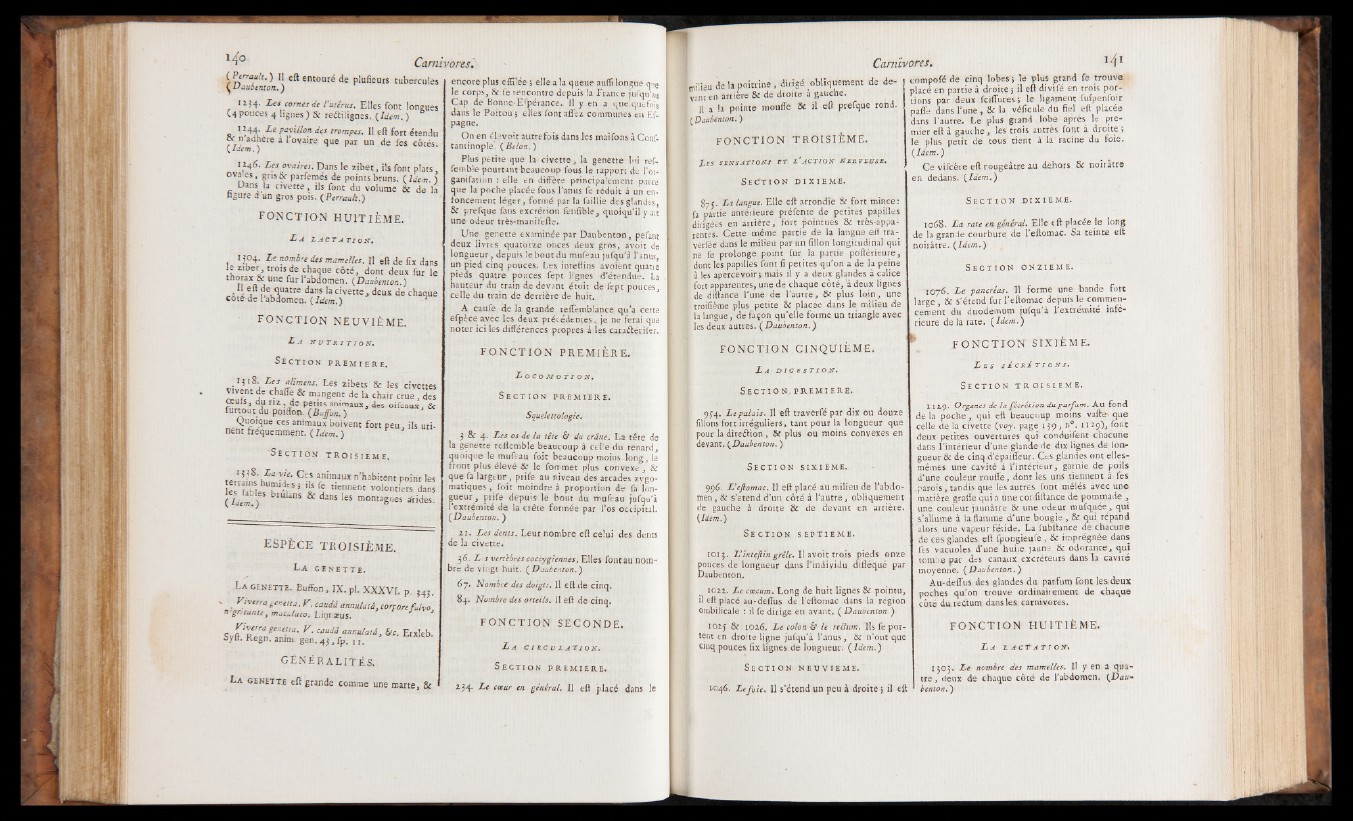 140
Carnivores.
(Perrault.) Il eſt entouré de pluſieurs tubercules
(Daubenton.)
1234. Les cornes de l'utérus. Elles ſont longues
(4 pouces 4 lignes) & rectilignes. (Idem.)
1244. Le pavillon des trompes. Il eſt fort étendu
& n'adhère à l'ovaire que par un de ſes côtés.
(Idem.)
1246. Les ovaires. Dans le zibet, ils ſont plats,
ovales, gris & parſemés de points bruns. (Idem.)
Dans la civette, ils ſont du volume & de la
figure d'un gros pois. (Perrault.)
FONCTION HUITIÈME.
LA LACTATION.
1304. Le nombre des mamelles. Il eſt de ſix dans
le zibet, trois de chaque côté, dont deux ſur le
thorax & une ſur l'abdomen. (Daubenton.)
Il eſt de quatre dans la civette, deux de chaque
côté de l'abdomen. (Idem.)
FONCTION NEUVIÈME.
LA NUTRITION.
SECTION PREMIERE.
1318. Les alimens. Les zibets & les civettes
vivent de chaſſe & mangent de la chair crue, des
œufs, du riz, de petits animaux, des oiſeaux, &
ſurtout du poiſſon. (Buffon.)
Quoique ces animaux boivent fort peu, ils uri-
nent fréquemment. (Idem.)
SECTION TROISIEME.
1338. La vie. Ces animaux n'habitent point les
terrains humides; ils ſe tiennent volontiers dans
les ſables brûlans & dans les montagnes arides.
(Idem.)
ESPÈCE TROISIÈME.
LA GENETTE.
LA GENETTE. Buffon, IX. pl. XXXVI. p. 343.
Viverra genetta, V. caudâ annulatâ, corpore fulvo,
nigricante, maculato. Linnæus.
Viverra genetta, V. caudâ annulatâ, &c. Erxleb.
Syſt. Regn. anim. gen. 43, ſp. 11.
GÉNÉRALITÉS.
LA GENETTE eſt grande comme une marte, &
encore plus effilée; elle a la queue auſſi longue que
le corps, & ſe rencontre depuis la France juſqu'au
Cap de Bonne-Eſpérance. Il y en a quelquefois
dans le Poitou; elles ſont aſſez communes en Eſ-
pagne.
On en élevoit autrefois dans les maiſons à Conſ-
tantinople. (Belon.)
Plus petite que la civette, la genette lui reſ-
ſemble pourtant beaucoup ſous le rapport de l'or-
ganiſation: elle en diffère principalement parce
que la poche placée ſous l'anus ſe réduit à un en-
foncement léger, formé par la ſaillie des glandes,
& preſque ſans excrétion ſenſible, quoiqu'il y ait
une odeur très-manifeſte.
Une genette examinée par Daubenton, peſant
deux livres quatorze onces deux gros, avoit de
longueur, depuis le bout du muſeau juſqu'à l'anus,
un pied cinq pouces. Les inteſtins avoient quatre
pieds quatre pouces ſept lignes d'étendue. La
hauteur du train de devant étoit de ſept pouces,
celle du train de derrière de huit.
A cauſe de la grande reſſemblance qu'a cette
eſpèce avec les deux précédentes, je ne ferai que
noter ici les différences propres à les caractériſer.
FONCTION PREMIÈRE.
LOCOMOTION.
SECTION PREMIERE.
Squelettologie.
3 & 4. Les os de la tête & du crâne. La tête de
la genette reſſemble beaucoup à celle du renard,
quoique le muſeau ſoit beaucoup moins long, le
front plus élevé & le ſommet plus convexe, &
que ſa largeur, priſe au niveau des arcades zygo-
matiques, ſoit moindre à proportion de ſa lon-
gueur, priſe depuis le bout du muſeau juſqu'à
l'extrémité de la crête formée par l'os occipital.
(Daubenton.)
21. Les dents. Leur nombre eſt celui des dents
de la civette.
36. Les vertèbres coccygiennes. Elles ſont au nom-
bre de vingt-huit. (Daubenton.)
67. Nombre des doigts. Il eſt de cinq.
84. Nombre des orteils. Il eſt de cinq.
FONCTION SECONDE.
LA CIRCULATION.
SECTION PREMIERE.
234. Le cœur en général. Il eſt placé dans le
Carnivores.
141
milieu de la poitrine, dirigé obliquement de de-
vant en arrière & de droite à gauche.
Il a la pointe mouſſe & il eſt preſque rond.
(Daubenton.)
FONCTION TROISIÈME.
LES SENSATIONS ET L'ACTION NERVEUSE.
SECTION DIXIEME.
875. La langue. Elle eſt arrondie & fort mince:
ſa partie antérieure préſente de petites papilles
dirigées en arrière, fort pointues & très-appa-
rentes. Cette même partie de la langue eſt tra-
verſée dans le milieu par un ſillon longitudinal qui
ne ſe prolonge point ſur la partie poſtérieure,
dont les papilles ſont ſi petites qu'on a de la peine
à les apercevoir; mais il y a deux glandes à calice
fort apparentes, une de chaque côté, à deux lignes
de diſtance l'une de l'autre, & plus loin, une
troiſième plus petite & placée dans le milieu de
la langue, de façon qu'elle forme un triangle avec
les deux autres. (Daubenton.)
FONCTION CINQUIÈME.
LA DIGESTION.
SECTION PREMIERE.
954. Le palais. Il eſt traverſé par dix ou douze
ſillons fort irréguliers, tant pour la longueur que
pour la direction, & plus ou moins convexes en
devant. (Daubenton.)
SECTION SIXIEME.
996. L'eſtomac. Il eſt placé au milieu de l'abdo-
men, & s'étend d'un côté à l'autre, obliquement
de gauche à droite & de devant en arrière.
(Idem.)
SECTION SEPTIEME.
1013. L'inteſtin grêle. Il avoit trois pieds onze
pouces de longueur dans l'individu diſſéqué par
Daubenton.
1022. Le cœcum. Long de huit lignes & pointu,
il eſt placé au-deſſus de l'eſtomac dans la région
ombilicale: il ſe dirige en avant. (Daubenton.)
1025 & 1026. Le colon & le rectum. Ils ſe por-
tent en droite ligne juſqu'à l'anus, & n'ont que
cinq pouces ſix lignes de longueur. (Idem.)
SECTION NEUVIEME.
1046. Le foie. Il s'étend un peu à droite; il eſt
compoſé de cinq lobes; le plus grand ſe trouve
placé en partie à droite; il eſt diviſé en trois por-
tions par deux ſciſſures; le ligament ſuſpenſoir
paſſe dans l'une, & la véſicule du fiel eſt placée
dans l'autre. Le plus grand lobe après le pre-
mier eſt à gauche, les trois autres ſont à droite;
le plus petit de tous tient à la racine du foie.
(Idem.)
Ce viſcère eſt rougeâtre au dehors & noirâtre
en dedans. (Idem.)
SECTION DIXIEME.
1068. La rate en général. Elle eſt placée le long
de la grande courbure de l'eſtomac. Sa teinte eſt
noirâtre. (Idem.)
SECTION ONZIEME.
1076. Le pancréas. Il forme une bande fort
large, & s'étend ſur l'eſtomac depuis le commen-
cement du duodenum juſqu'à l'extrémité infé-
rieure de la rate. (Idem.)
FONCTION SIXIÈME.
LES SÉCRÉTIONS.
SECTION TROISIEME.
1129. Organes de la ſécrétion du parfum. Au fond
de la poche, qui eſt beaucoup moins vaſte que
celle de la civette (voy. page 139, n°. 1129), ſont
deux petites ouvertures qui conduiſent chacune
dans l'intérieur d'une glande de dix lignes de lon-
gueur & de cinq d'épaiſſeur. Ces glandes ont elles-
mêmes une cavité à l'intérieur, garnie de poils
d'une couleur rouſſe, dont les uns tiennent à ſes
parois, tandis que les autres ſont mêlés avec une
matière graſſe qui a une conſiſtance de pommade,
une couleur jaunâtre & une odeur muſquée, qui
s'allume à la flamme d'une bougie, & qui répand
alors une vapeur fétide. La ſubſtance de chacune
de ces glandes eſt ſpongieuſe, & imprégnée dans
ſes vacuoles d'une huile jaune & odorante, qui
tombe par des canaux excréteurs dans la cavité
moyenne. (Daubenton.)
Au-deſſus des glandes du parfum ſont les deux
poches qu'on trouve ordinairement de chaque
côté du rectum dans les carnivores.
FONCTION HUITIÈME.
LA LACTATION.
1303. Le nombre des mamelles. Il y en a qua-
tre, deux de chaque côté de l'abdomen. (Dau-
benton.)